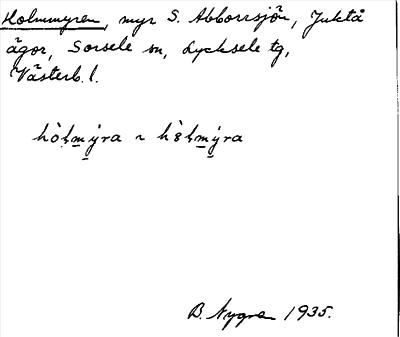 Holmmyren, myr S. Abborrsjön, Juktå
ägor, Sorsele sn, Lycksele tg,
Västerb. l.
hòḷm̲ýra ~ hòḷm̲ýra
B. Nygren 1935.